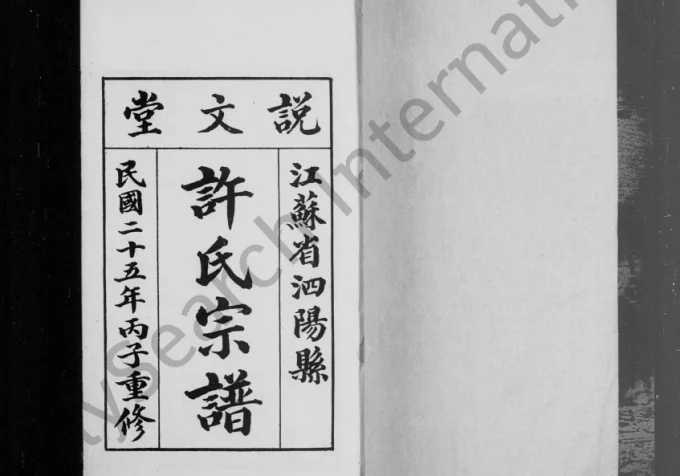 說文堂
江蘇省泗陽縣
許氏宗譜
民國二十五年丙子重修